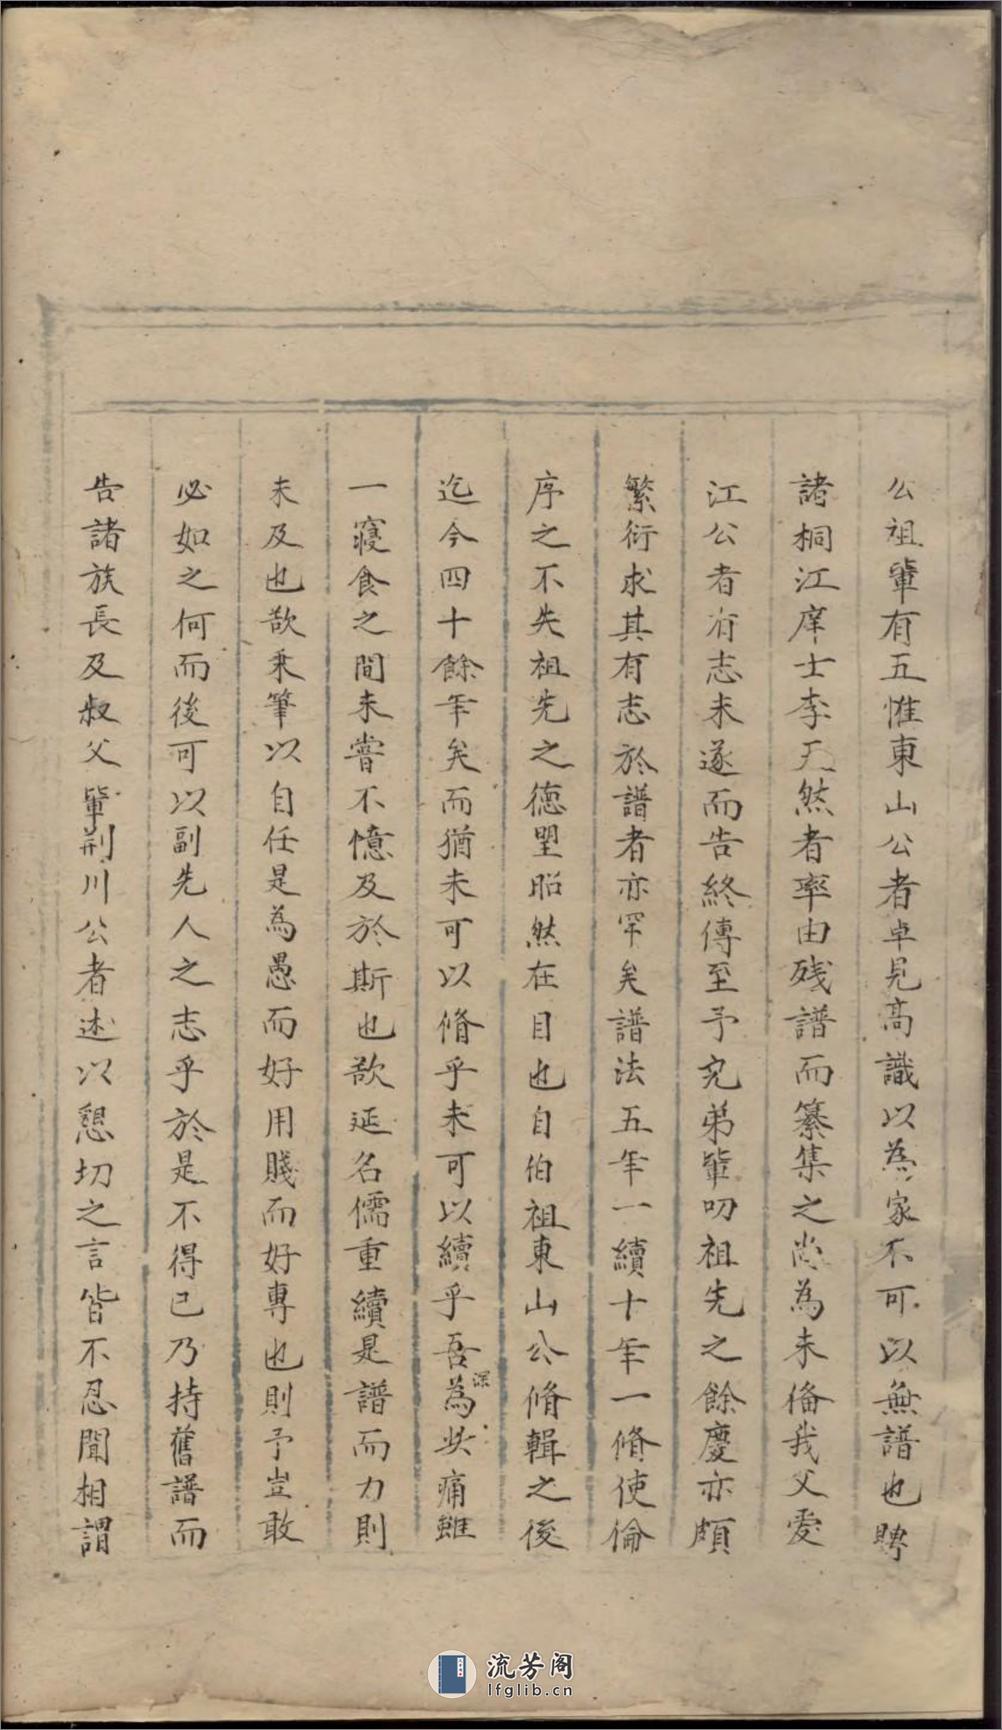 公祖輩有五惟東山公者卓見高識以為家不可以無譜也聘
諸桐江庠士李天然者率由残譜而纂集之尚為未俻我父愛
江公者有志未遂而告終傳至予兄弟輩叨祖先之餘慶亦頗
繁衍求其有志於譜者亦罕矣譜法五年一續十年一脩使倫
序之不失祖先之德望昭然在目也自伯祖東山公脩輯之後
迄今四十餘年矣而猶未可以脩乎未可以續乎吾深為此痛雖
一寢食之間未嘗不憶及於斯也欲延名儒重續是譜而力則
未及也欲秉筆以自任是為愚而好用賤而好專也則予豈敢
必如之何而後可以副先人之志乎於是不得已乃持舊譜而
告諸族長及叔父輩荆川公者述以懇切之言皆不忍聞相謂
流芳阁
lfglib.cn